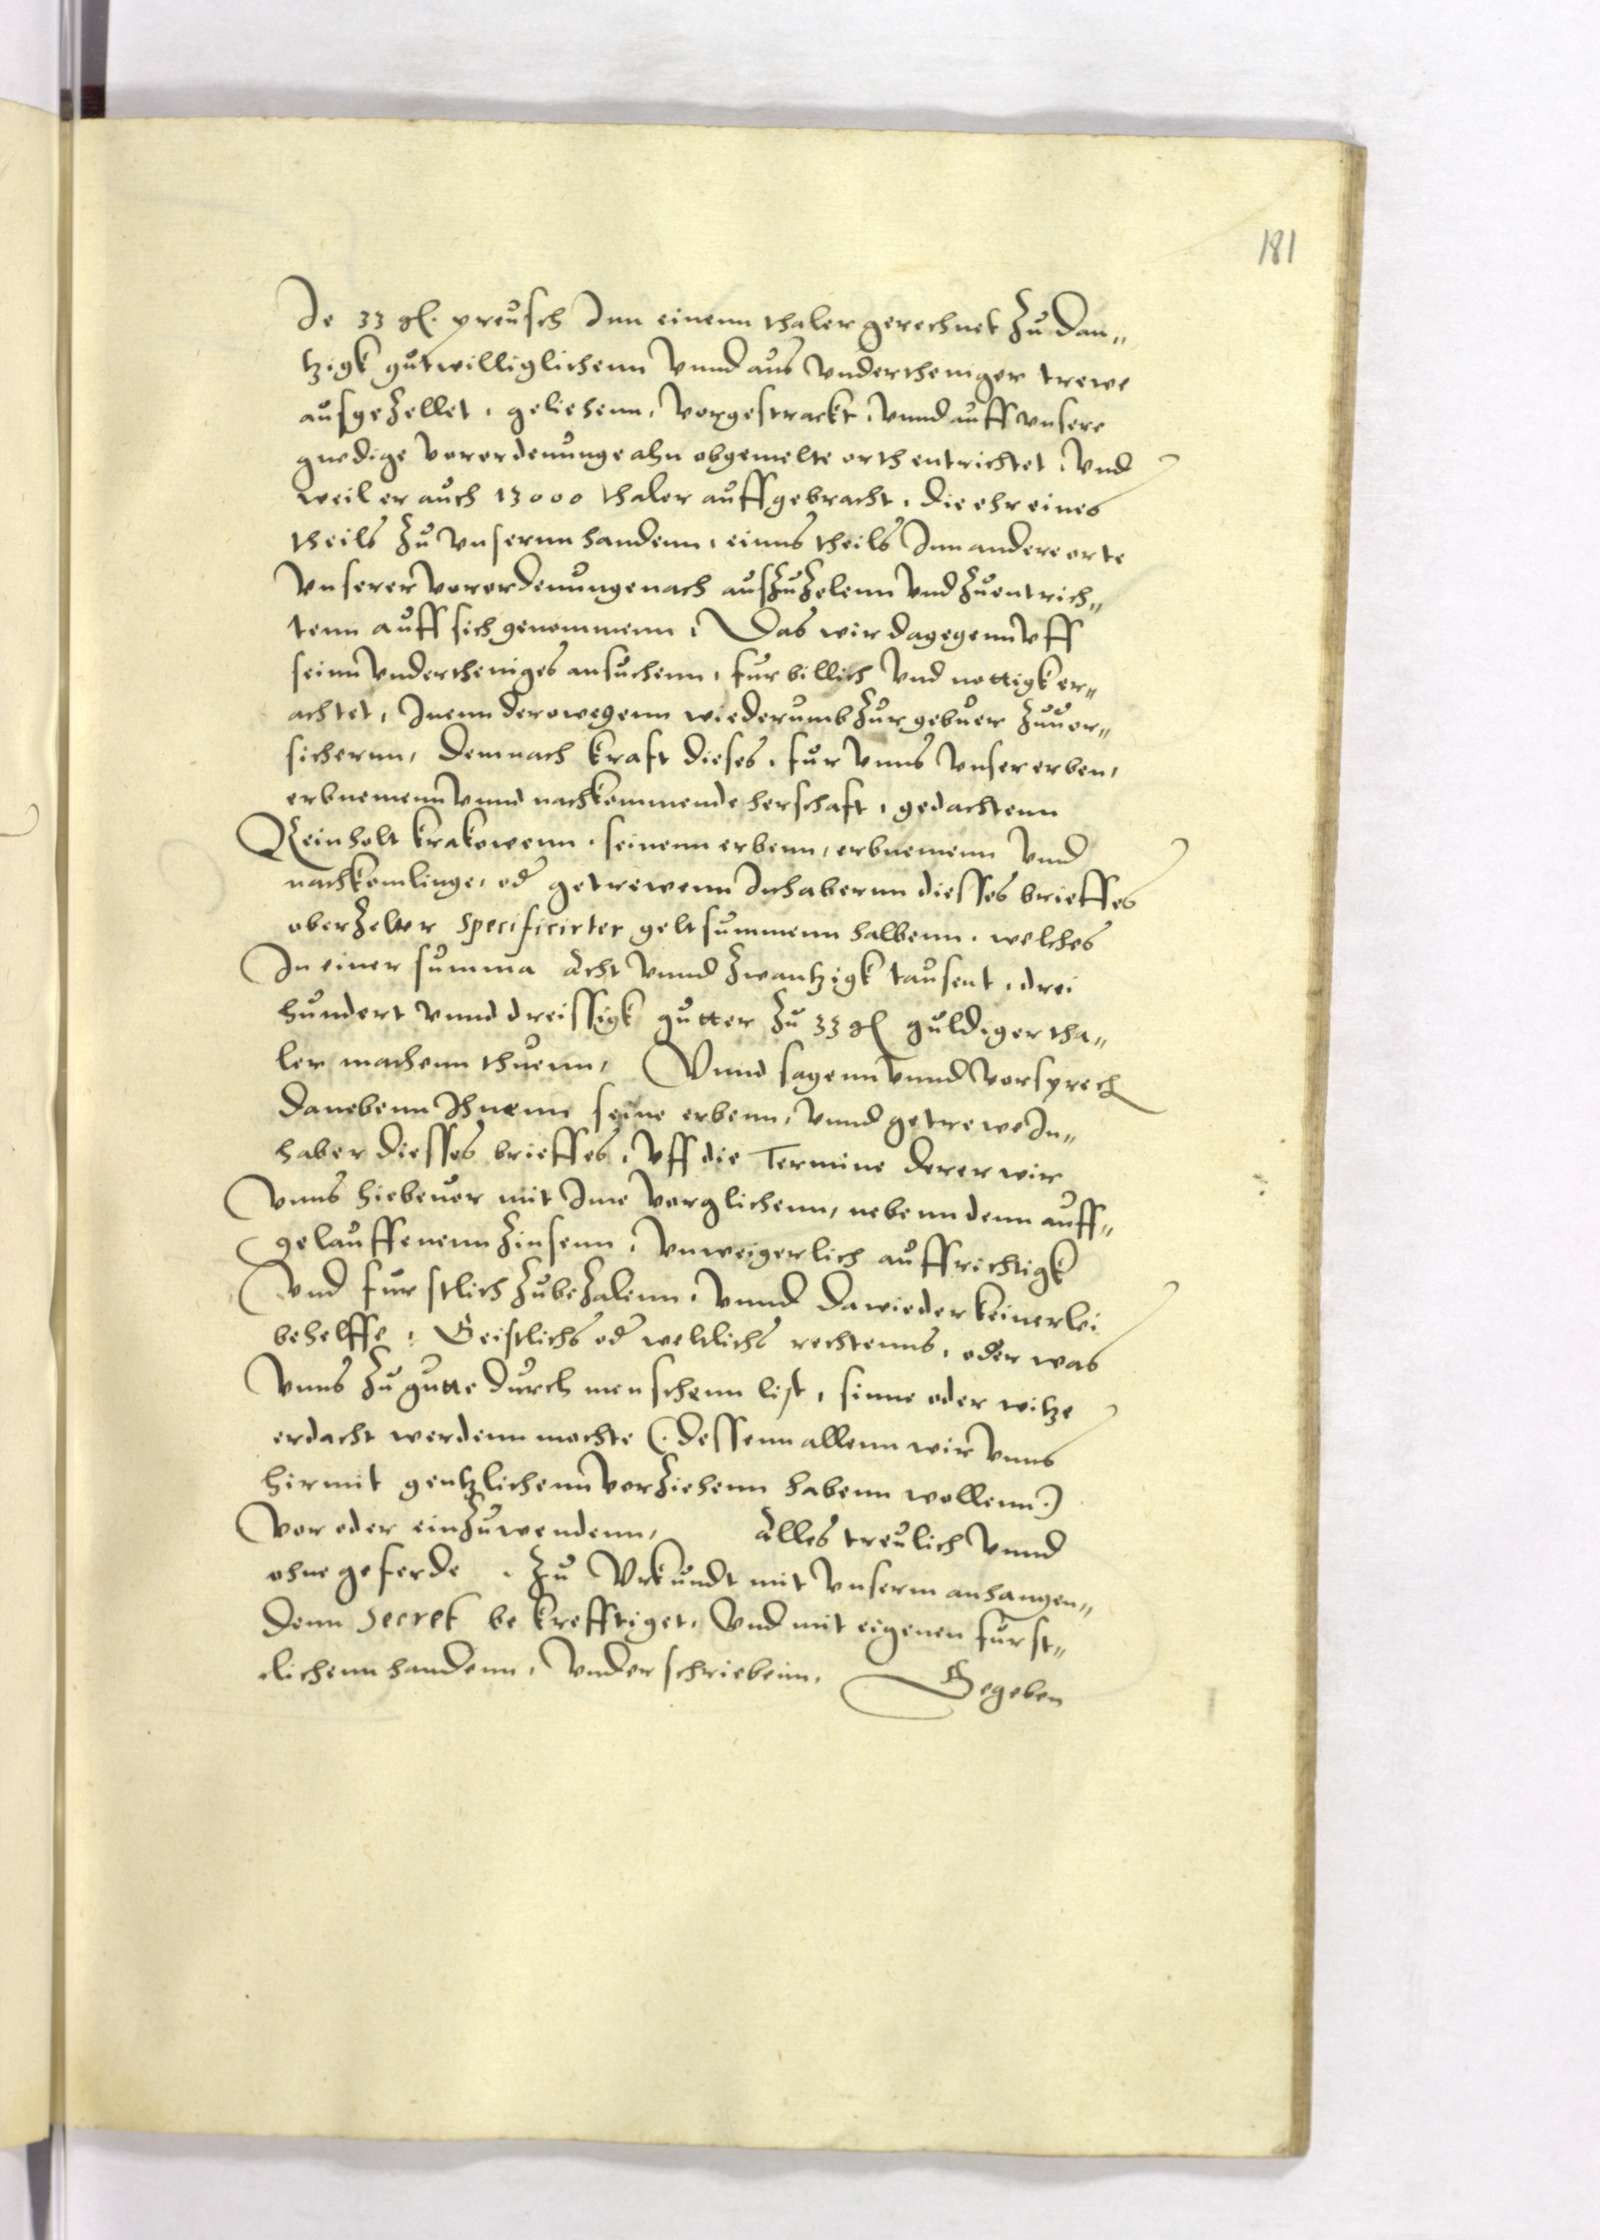 181
Je 33 gl. preusch Inn einenn thaler gerechnet zu Dan„
tzigk gutwilliglichenn vnnd aus vndertheniger trewe
ausgezellet, geliehenn, vorgestrackt, vnnd auff vnsere
gnedige verordenunge ahn obgemelte orth entrichtet, vnd
weil er auch 13000 thaler auffgebracht, die ehr eines
theils zu vnsernn handenn, einns theils Inn andere orte
vnserer verordenunge nach auszuzelenn vnd zuentrich„
tenn auff sich genommenn, Das wir dagegenn vff
seinn vndertheniges ansuchenn, fur billich vnd nottigk er„
achtet, Inenn derowegenn wiederumb zur gebuer zuuor„
sichernn, Demnach krafft dieses, fur vnns vnser erben,
erbnemenn vnnd nachkommende herschaft, gedachtenn
Reinholt krakowenn, seinenn erbenn, erbnemenn vnd
nachkomlinge, od getrewenn Inhabernn diesses brieffes
oberzelter specificirter geltsummenn halbenn, welches
In einer summa Acht vnnd zwantzigk tausent, drei
hundert vnnd dreissigk gutter zu 33 gl guldiger tha„
ler machenn thuenn, Vnnd sagenn vnnd vorsprech
danebenn Ihnenn seine erbenn, vnnd getrewe In„
haber diesses brieffes, vff die Termine derer wir
vnns hiebeuor mit Ime verglichenn, nebenn denn auff„
gelauffenenn zinsenn, vnweigerlich auffrichtigk
vnd furstlich zubezalenn, vnnd dawieder keinerlei
behelffe, Geistlichs od weltlichs rechtenns, oder was
vnns zu gutte durch menschenn list, sinne oder witze
erdacht werdenn mochte (. dessenn allenn wir vnns
hirmit gentzlichenn verziehenn habenn wollenn .)
vor oder einzuwendenn, Alles treulich vnnd
ohne geferde . Zu Vrkundt mit vnserm anhangen„
denn Secret bekrefftiget, vnd mit eigenen furst„
lichenn handenn, vnderschriebenn, Gegeben